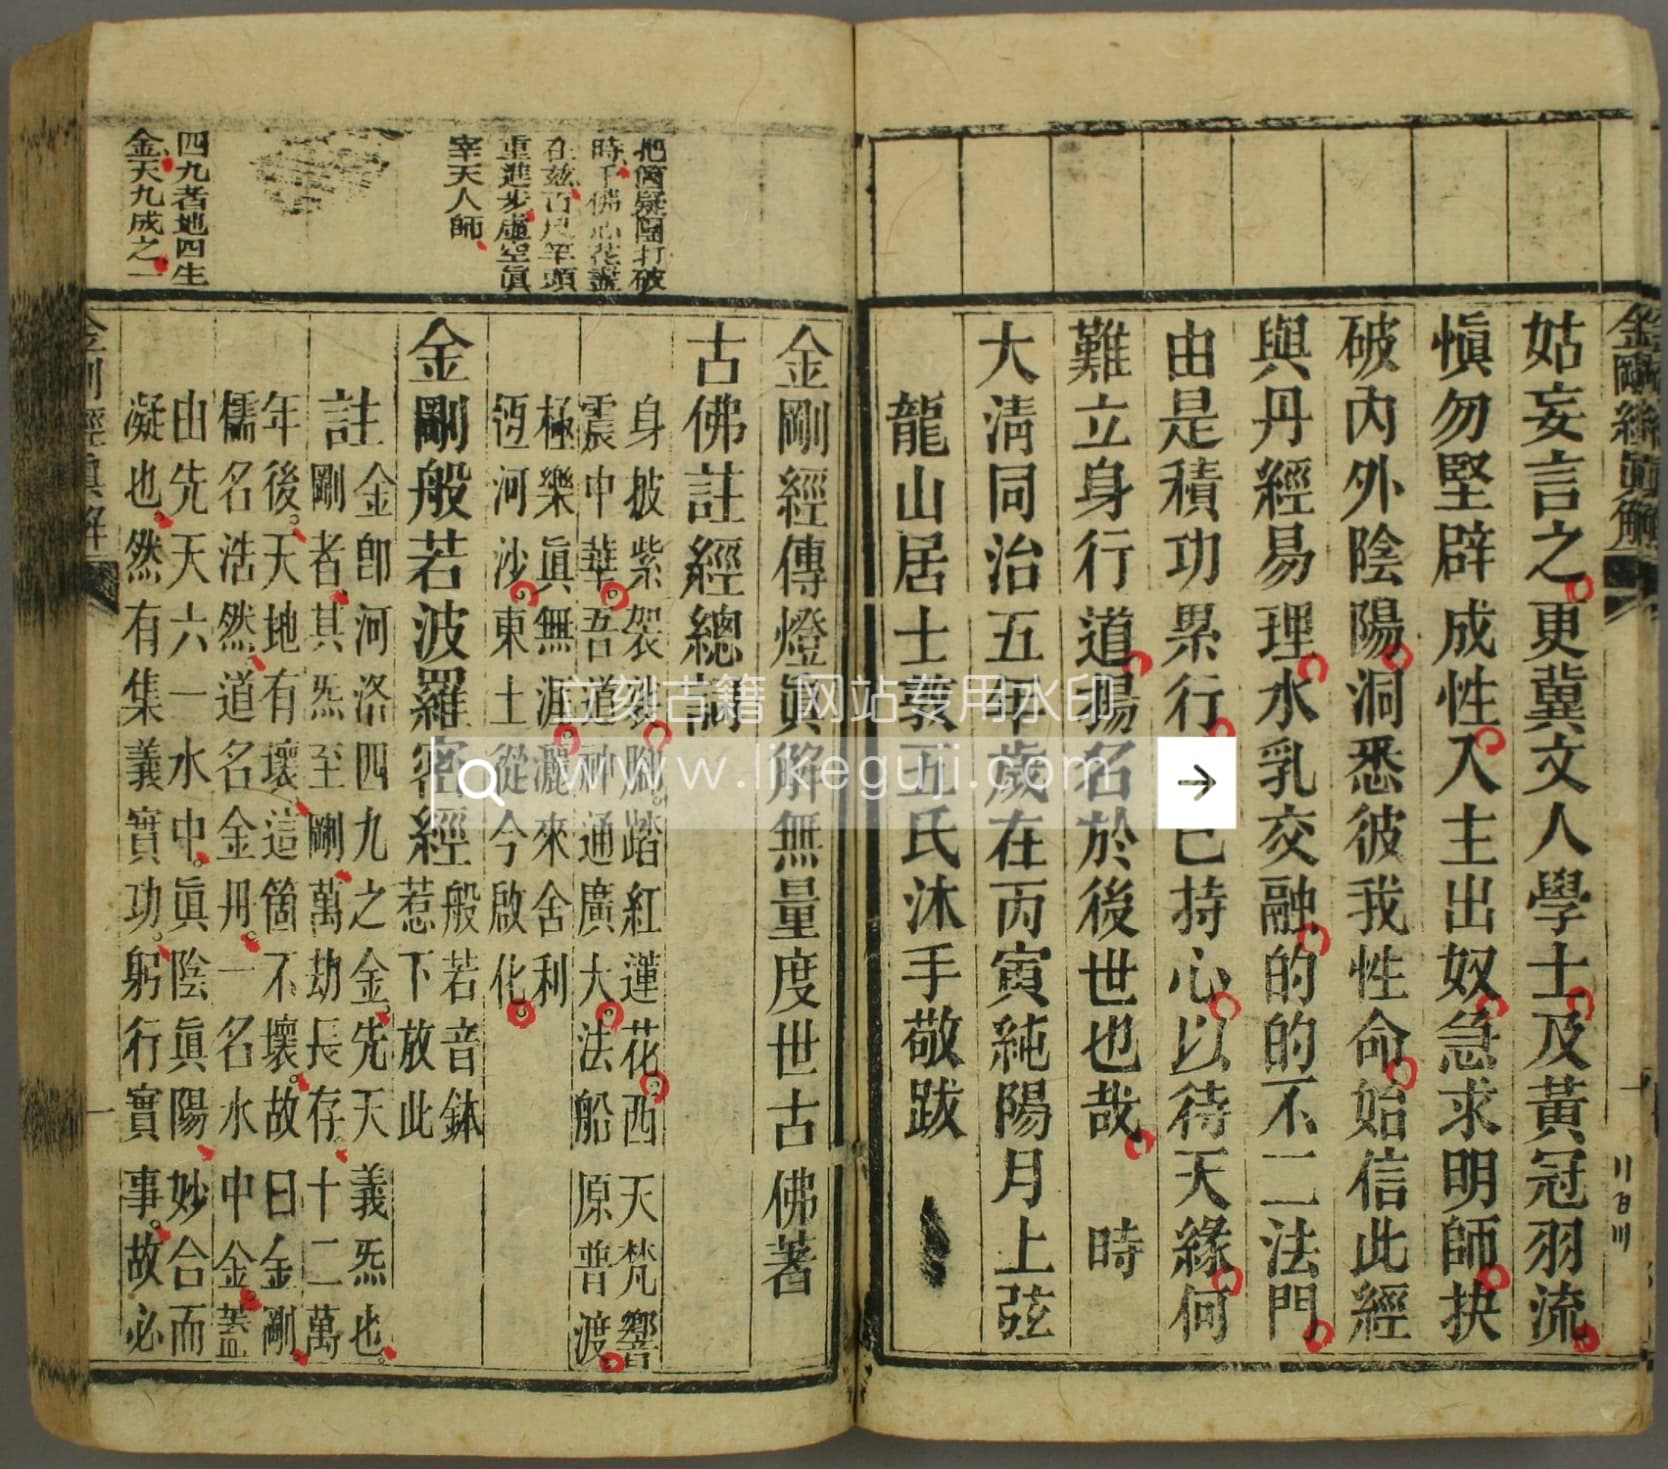 姑妄言之更冀文人學士及黃冠羽流
慎勿堅辟成性入主出奴急求明師抉
破內外陰陽洞悉彼我性命始信此經
與丹經易理水乳交融的的不二法門
由是積功累行已持心以待天緣何
難立身行道揚名於後世也哉 時
大清同治五年歲在丙寅純陽月上弦
龍山居士敦五氏沐手敬跋
金剛經真解
金剛經傳燈真解無量度世古佛著
古佛註經總詞
身披紫袈裟腳踏紅蓮花西天梵響
震中華吾道神通廣大法船原普渡
極樂真無涯灑來舍利
恆河沙東土從今啟化
金剛般若波羅密經
般若音鉢
惹下放此
註
金即河洛四九之金先天義炁也
剛者其炁至剛萬劫長存十二萬
年後天地有壞這箇不壞故曰金剛
儒名浩然道名金丹一名水中金蓋
由先天六一水中真陰真陽妙合而
凝也然有集義實功躬行實事故必
把箇疑團打破
時千佛心花盡
在茲百尺竿頭
重進步虛空真
宰天人師
四九者地四生
金天九成之一
金剛經真解
一
立刻古籍 网站专用水印
www.likeguji.com